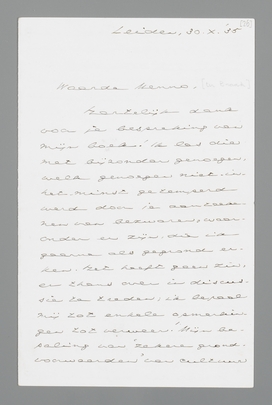 Leiden, 30.X.'35
Waarde Menno,
Hartelijk dank
voor je bespreking van
mijn boek. Ik las die
met bijzonder genoegen,
welk genoegen niet in
het minst getemperd
werd door je aantee-
kenen van bezwaren, waar-
onder er zijn, die ik
gaarne als gegrond er-
ken. Het heeft geen zin,
er thans over in discus-
sie te treden; ik bepaal
mij tot enkele opmerkin-
gen tot verweer. Mijn be-
paling van 'zekere grond-
voorwaarden' van cultuur